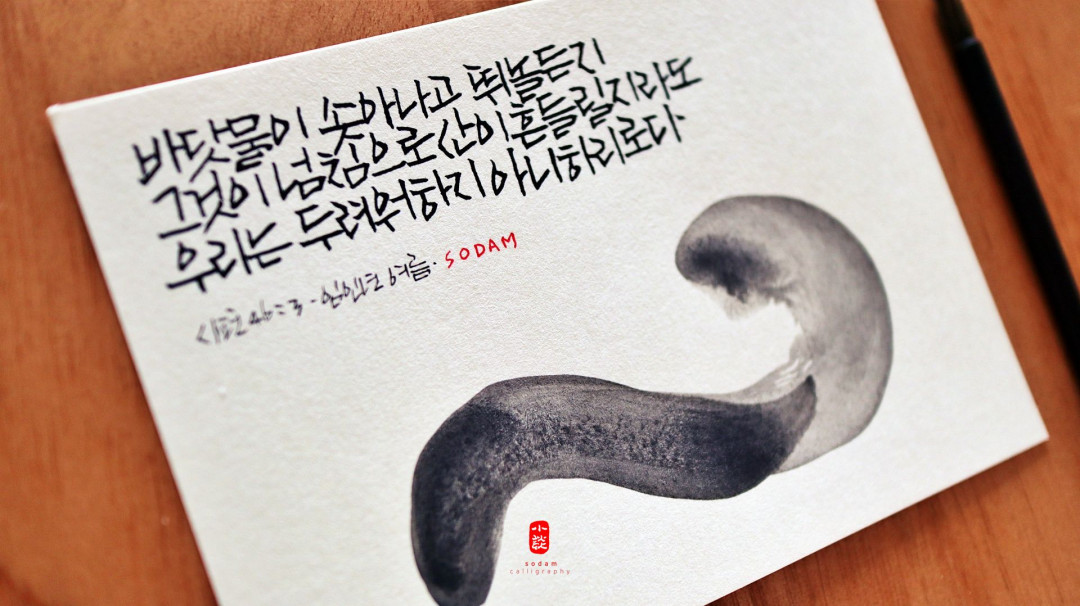 바닷물이 솟아나고 뛰놀든지
그것이 넘침으로 산이 흔들릴지라도
우리는 두려워하지 아니하리로다.
시편 46:3 - 임인년 여름. SODAM
小
sodam
calligraphy